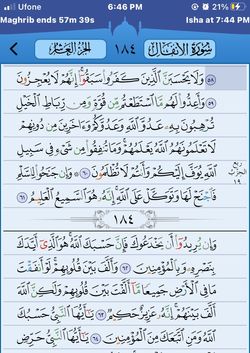 Ufone 6:46 PM 21%
Maghrib ends 57m 39s Isha at 7:44 PM
سُورَةُ الأَنفَالِ ١٨٤ الجُزْءُ العَاشِرُ
٥٨ وَلَا يَحْسَبَنَّ الَّذِينَ كَفَرُوا سَبَقُوا إِنَّهُمْ لَا يُعْجِزُونَ
٥٩ وَأَعِدُّوا لَهُم مَّا اسْتَطَعْتُم مِّن قُوَّةٍ وَمِن رِّبَاطِ الْخَيْلِ
تُرْهِبُونَ بِهِ عَدُوَّ اللَّهِ وَعَدُوَّكُمْ وَءَاخَرِينَ مِن دُونِهِمْ
لَا تَعْلَمُونَهُمُ اللَّهُ يَعْلَمُهُمْ وَمَا تُنفِقُوا مِن شَيْءٍ فِي سَبِيلِ
رُبْع الحِزْب ١٩
اللَّهِ يُوَفَّ إِلَيْكُمْ وَأَنتُمْ لَا تُظْلَمُونَ ٦٠ وَإِن جَنَحُوا لِلسَّلْمِ
فَاجْنَحْ لَهَا وَتَوَكَّلْ عَلَى اللَّهِ إِنَّهُ هُوَ السَّمِيعُ الْعَلِيمُ ٦١
١٨٤
وَإِن يُرِيدُوا أَن يَخْدَعُوكَ فَإِنَّ حَسْبَكَ اللَّهُ هُوَ الَّذِي أَيَّدَكَ
بِنَصْرِهِ وَبِالْمُؤْمِنِينَ ٦٢ وَأَلَّفَ بَيْنَ قُلُوبِهِمْ لَوْ أَنفَقْتَ
مَا فِي الْأَرْضِ جَمِيعًا مَّا أَلَّفْتَ بَيْنَ قُلُوبِهِمْ وَلَٰكِنَّ اللَّهَ
أَلَّفَ بَيْنَهُمْ إِنَّهُ عَزِيزٌ حَكِيمٌ ٦٣ يَا أَيُّهَا النَّبِيُّ حَسْبُكَ
اللَّهُ وَمَنِ اتَّبَعَكَ مِنَ الْمُؤْمِنِينَ ٦٤ يَا أَيُّهَا النَّبِيُّ حَرِّضِ